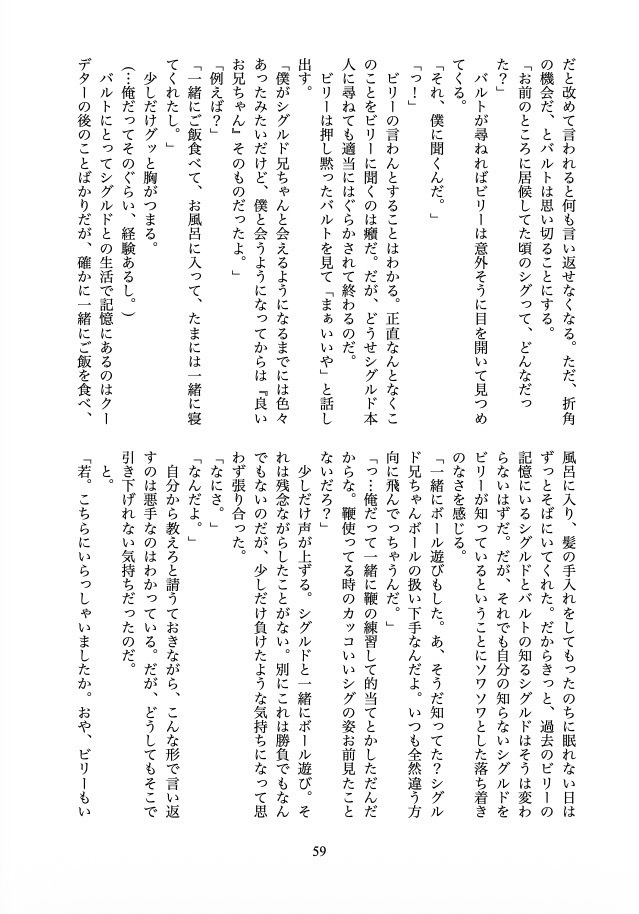 だと改めて言われると何も言い返せなくなる。ただ、折角
の機会だ、とバルトは思い切ることにする。
「お前のところに居候してた頃のシグって、どんなだっ
た？」
バルトが尋ねればビリーは意外そうに目を開いて見つめ
てくる。
「それ、僕に聞くんだ。」
「っ！」
ビリーの言わんとすることはわかる。正直なんとなくこ
のことをビリーに聞くのは癪だ。だが、どうせシグルド本
人に尋ねても適当にはぐらかされて終わるのだ。
ビリーは押し黙ったバルトを見て「まぁいいや」と話し
出す。
「僕がシグルド兄ちゃんと会えるようになるまでには色々
あったみたいだけど、僕と会うようになってからは『良い
お兄ちゃん』そのものだったよ。」
「例えば？」
「一緒にご飯食べて、お風呂に入って、たまには一緒に寝
てくれたし。」
少しだけグッと胸がつまる。
(…俺だってそのぐらい、経験あるし。)
バルトにとってシグルドとの生活で記憶にあるのはクー
デターの後のことばかりだが、確かに一緒にご飯を食べ、
風呂に入り、髪の手入れをしてもったのちに眠れない日は
ずっとそばにいてくれた。だからきっと、過去のビリーの
記憶にいるシグルドとバルトの知るシグルドはそうは変わ
らないはずだ。だが、それでも自分の知らないシグルドを
ビリーが知っているということにソワソワとした落ち着き
のなさを感じる。
「一緒にボール遊びもした。あ、そうだ知ってた？シグル
ド兄ちゃんボールの扱い下手なんだよ。いつも全然違う方
向に飛んでっちゃうんだ。」
「っ…俺だって一緒に鞭の練習して的当てとかしただんだ
からな。鞭使ってる時のカッコいいシグの姿お前見たこと
ないだろ？」
少しだけ声が上ずる。シグルドと一緒にボール遊び。そ
れは残念ながらしたことがない。別にこれは勝負でもなん
でもないのだが、少しだけ負けたような気持ちになって思
わず張り合った。
「なにさ。」
「なんだよ。」
自分から教えろと請うておきながら、こんな形で言い返
すのは悪手なのはわかっている。だが、どうしてもそこで
引き下げれない気持ちだったのだ。
と。
「若。こちらにいらっしゃいましたか。おや、ビリーもい
59